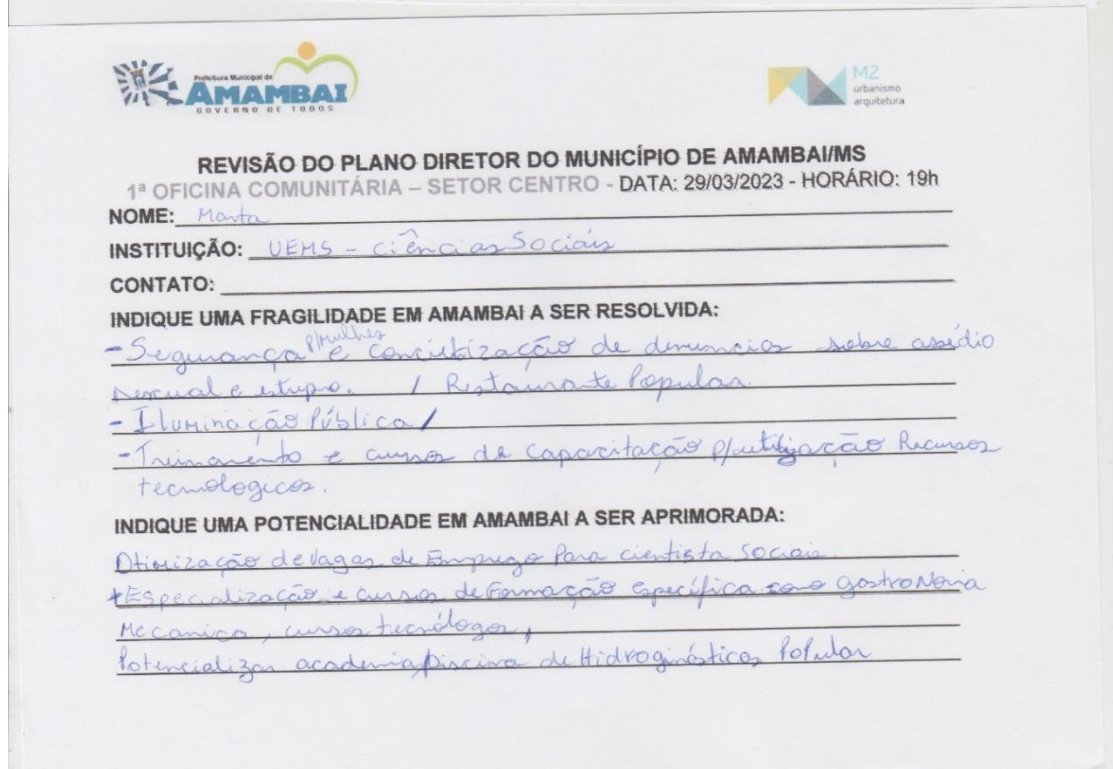 Prefeitura Municipal de
AMAMBAI
GOVERNO DE TODOS
M2
urbanismo
arquitetura
REVISÃO DO PLANO DIRETOR DO MUNICÍPIO DE AMAMBAI/MS
1ª OFICINA COMUNITÁRIA – SETOR CENTRO - DATA: 29/03/2023 - HORÁRIO: 19h
NOME: Marta
INSTITUIÇÃO: UEMS - Ciências Sociais
CONTATO:
INDIQUE UMA FRAGILIDADE EM AMAMBAI A SER RESOLVIDA:
- Segurança p/mulhes e de denuncias sobre assédio
sexual e estupro. / Restaurante Popular
- Iluminação Pública /
- Treinamento e cursos de Capacitação p/utilização Recursos
tecnologicos.
INDIQUE UMA POTENCIALIDADE EM AMAMBAI A SER APRIMORADA:
Otimização de Vagas de Emprego Para cientista Sociais
+ Especialização e cursos de Formação específica como gastronomia
Mecanica, cursos tecnólogos,
Potencializar academia/piscina de Hidroginásticas Popular